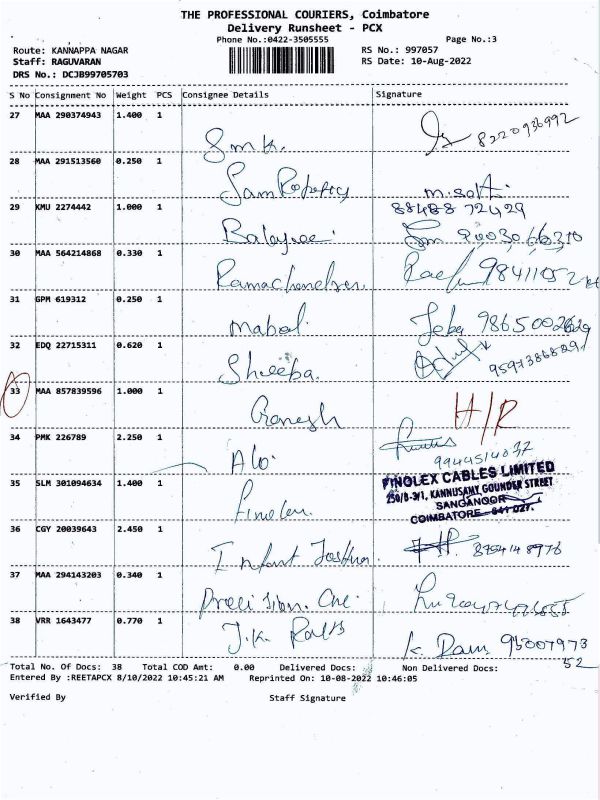 THE PROFESSIONAL COURIERS, Coimbatore
Delivery Runsheet - PCX
Phone No.:0422-3505555
Page No.:3
Route: KANNAPPA NAGAR
RS No.: 997057
Staff: RAGUVARAN
RS Date: 10-Aug-2022
DRS No.: DCJB99705703
S No Consignment No Weight PCS Consignee Details Signature
27 MAA 290374943 1.400 1
Smk. 8220936992
28 MAA 291513560 0.250 1
Sam
88488 72429
29 KMU 2274442 1.000 1
Balajee
30 MAA 564214868 0.330 1
Ramachandran
31 GPM 619312 0.250 1
32 EDQ 22715311 0.620 1
Sheeba.
33 MAA 857839596 1.000 1
Ganesh H/R
34 PMK 226789 2.250 1
9944514032
35 SLM 301094634 1.400 1
FINOLEX CABLES LIMITED
250/8-3/1, KANNUSAMY GOUNDER STREET
SANGANOOR
COIMBATORE - 641 027.
36 CGY 20039643 2.450 1
Infant Joshua 8754148976
37 MAA 294143203 0.340 1
38 VRR 1643477 0.770 1
J.K. 95007973
52
Total No. Of Docs: 38 Total COD Amt: 0.00 Delivered Docs: Non Delivered Docs:
Entered By :REETAPCX 8/10/2022 10:45:21 AM Reprinted On: 10-08-2022 10:46:05
Verified By Staff Signature